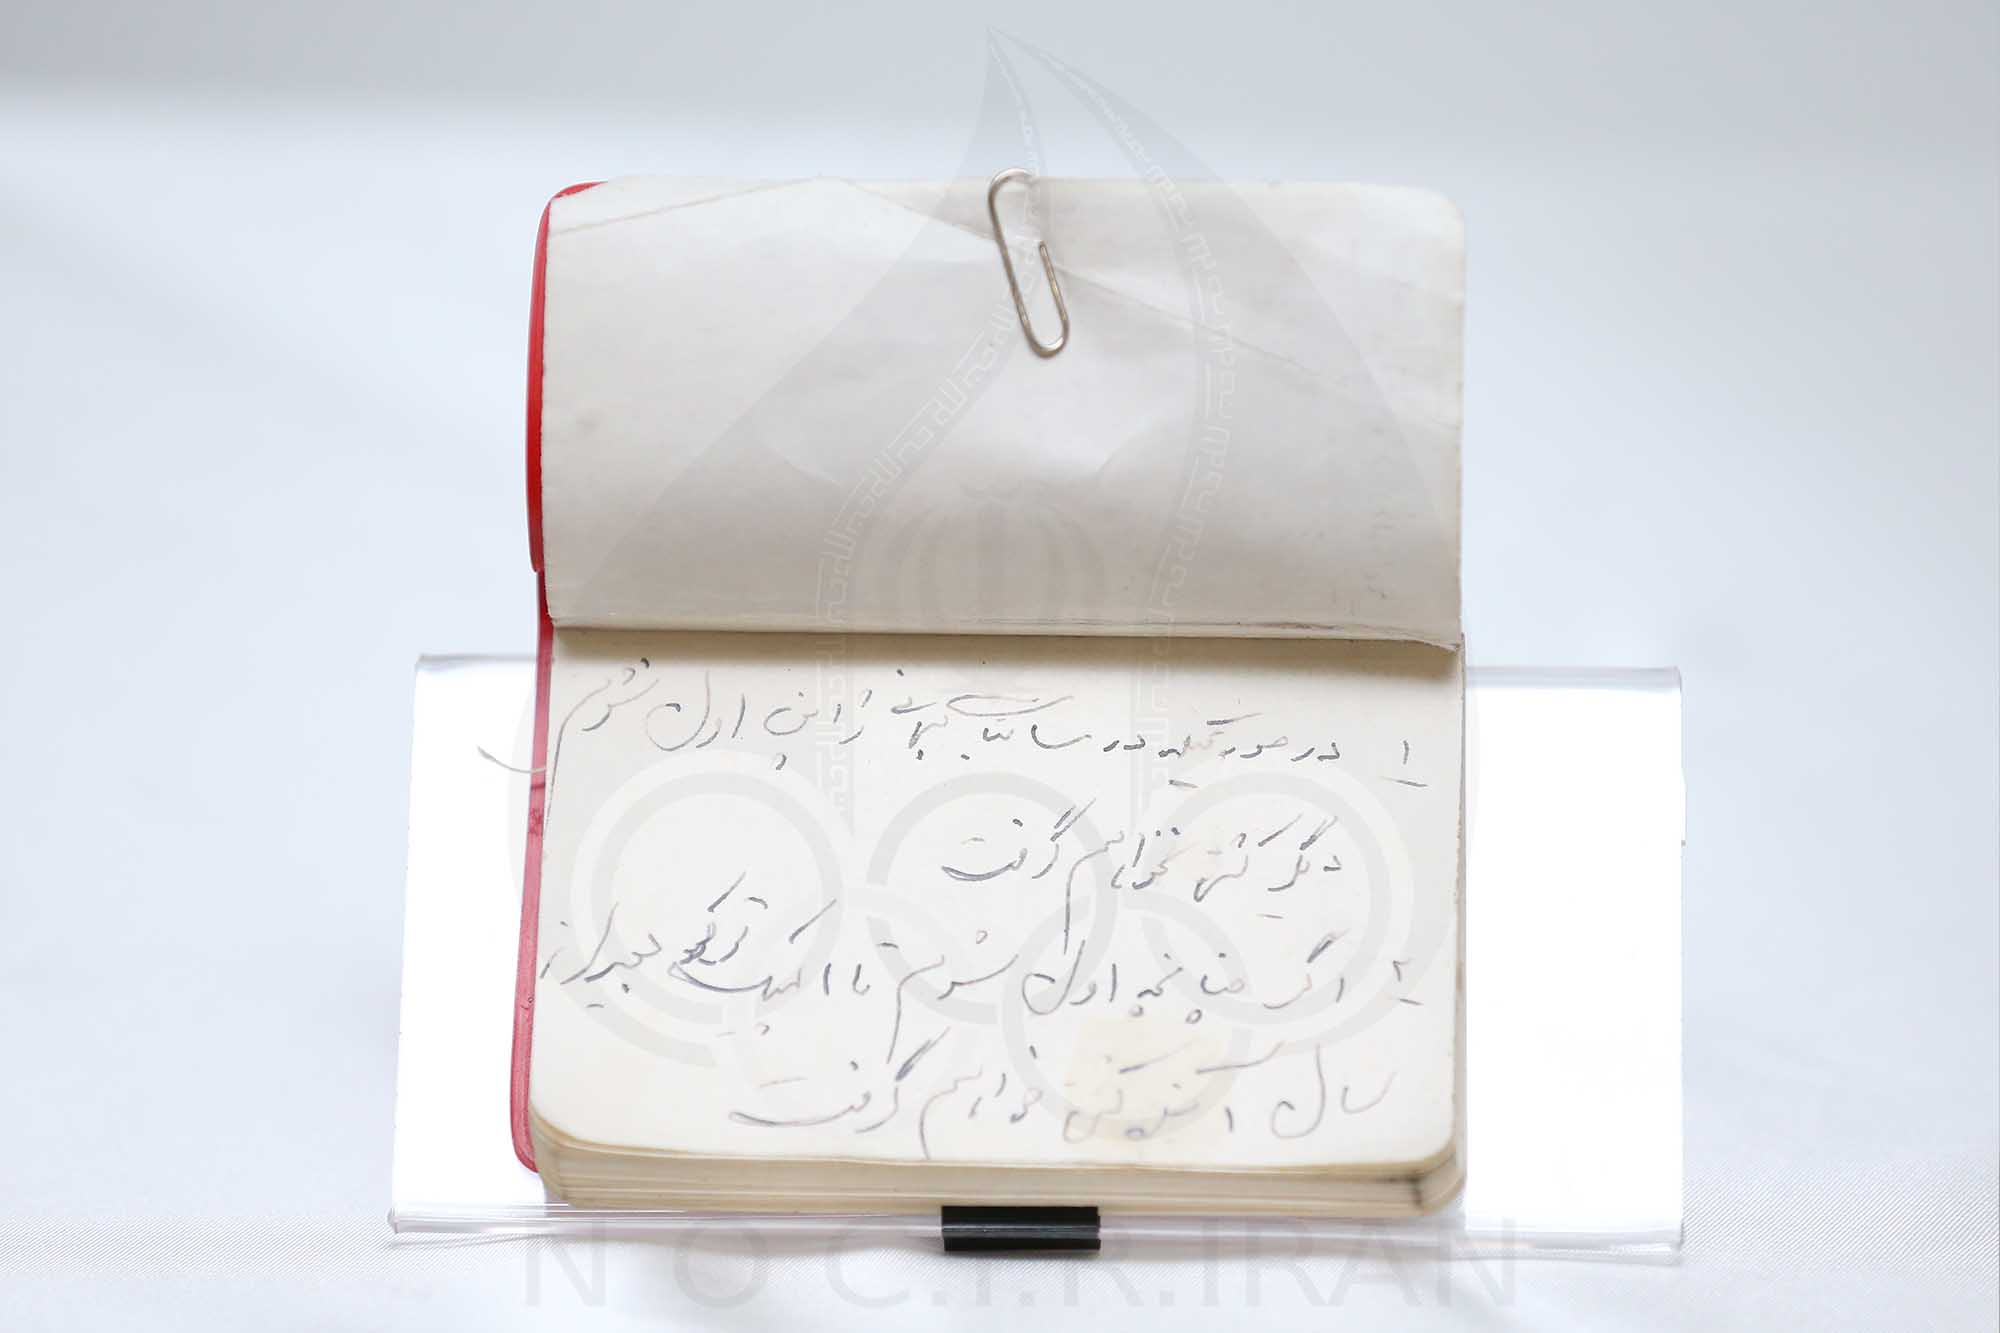 ۱ در صورتیکه در مسابقات جهانی ژاپن اول نشوم
دیگر کشتی نخواهم گرفت
۲ اگر چنانچه اول شوم تا المپیک توکیو بغیر از
سال آینده کشتی خواهم گرفت
N O C.I.R.IRAN